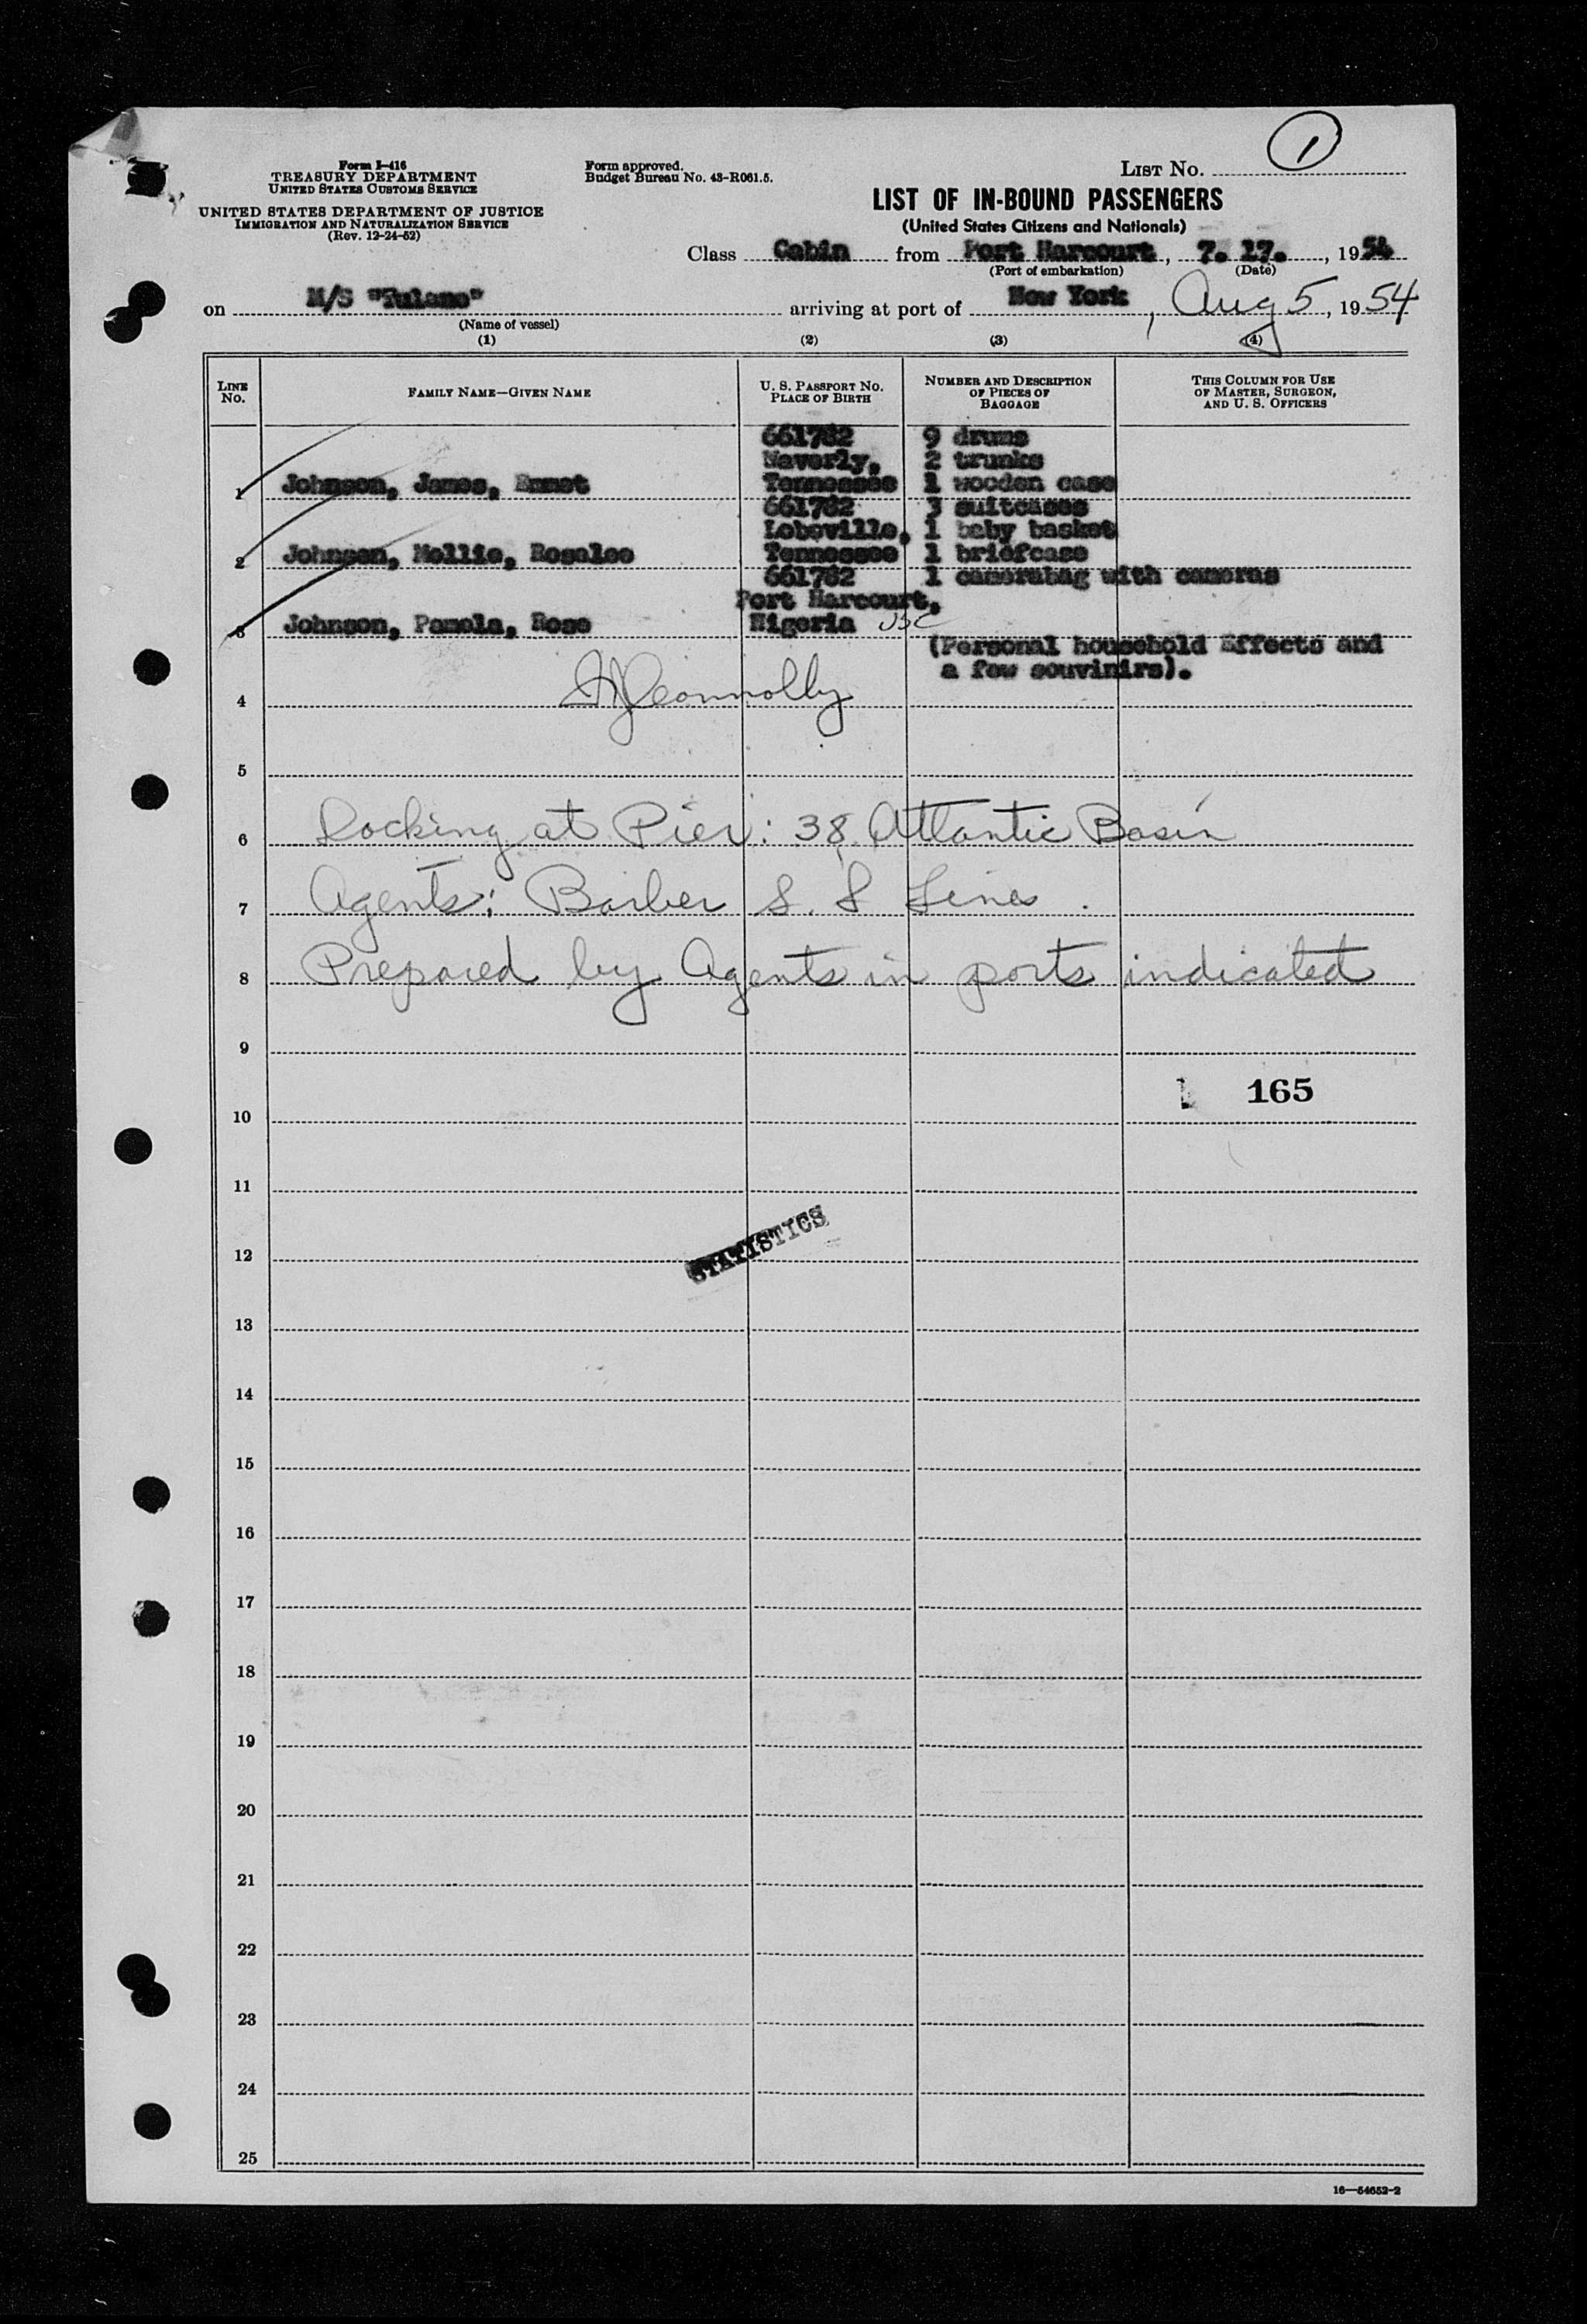 1
Form I-416
TREASURY DEPARTMENT
UNITED STATES CUSTOMS SERVICE
UNITED STATES DEPARTMENT OF JUSTICE
IMMIGRATION AND NATURALIZATION SERVICE
(Rev. 12-24-52)
Form approved.
Budget Bureau No. 43-R061.5.
LIST No.
LIST OF IN-BOUND PASSENGERS
(United States Citizens and Nationals)
Class Cabin from Port Harcourt, 7. 17., 1954
(Port of embarkation) (Date)
on M/S "Tulane" arriving at port of New York, Aug 5, 1954
(Name of vessel)
(1) (2) (3) (4)
LINE No. FAMILY NAME—GIVEN NAME U. S. PASSPORT No. PLACE OF BIRTH NUMBER AND DESCRIPTION OF PIECES OF BAGGAGE THIS COLUMN FOR USE OF MASTER, SURGEON, AND U. S. OFFICERS
661782 9 drums
Waverly, 2 trunks
1 Johnson, James, Tennessee 1 wooden case
661782 3 suitcases
Loboville, 1 baby basket
2 Johnson, Mollie, Rosalee Tennessee 1 briefcase
661782 1 camerabag with cameras
Port Harcourt,
3 Johnson, Pamela, Rose Nigeria USC
(Personal household Effects and
a few souvinirs).
4 Connolly
5
6 Docking at Pier: 38 Atlantic Basin
7 Agents: Barber S. S Lines.
8 Prepared by Agents in ports indicated
9
165
10
11
STATISTICS
12
13
14
15
16
17
18
19
20
21
22
23
24
25
16—54652-2